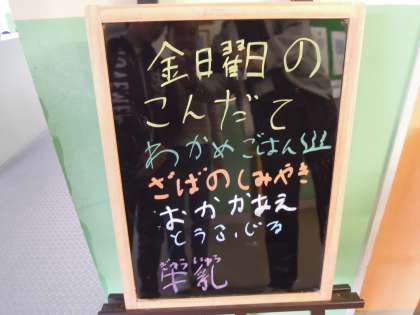 金曜日の
こんだて
わかめごはん
さばのしみやき
おかかあえ
とうふじる
ぎゅうにゅう
牛乳